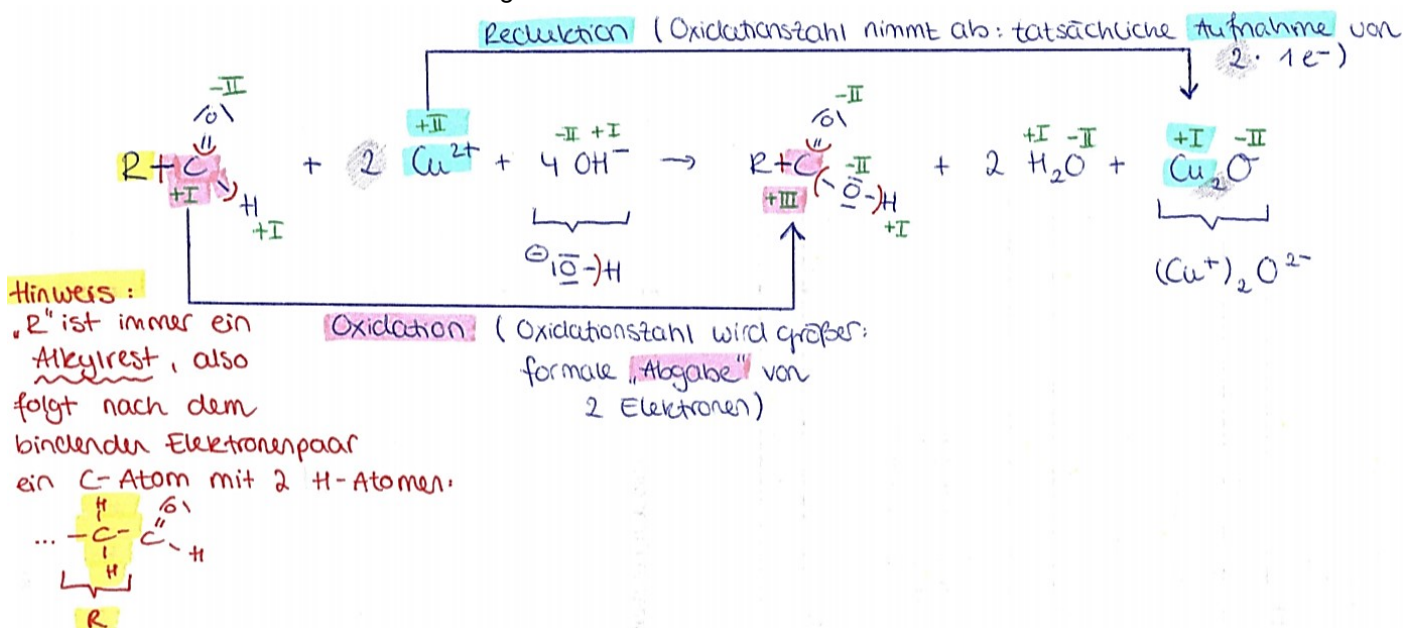 Reduktion (Oxidationszahl nimmt ab: tatsächliche Aufnahme von
2 · 1 e⁻)
-II
|O|
R-C
+I
H
+I
+ 2 Cu²⁺ + 4 OH⁻ →
+II
-II +I
⊖|O-H
-II
|O|
R-C
+III
-II
O-H
+I
+ 2 H₂O + Cu₂O
+I -II
+I -II
(Cu⁺)₂O²⁻
Oxidation (Oxidationszahl wird größer:
formale „Abgabe" von
2 Elektronen)
Hinweis:
„R" ist immer ein
Alkylrest, also
folgt nach dem
bindenden Elektronenpaar
ein C-Atom mit 2 H-Atomen:
H |O|
... -C-C
H
H
R